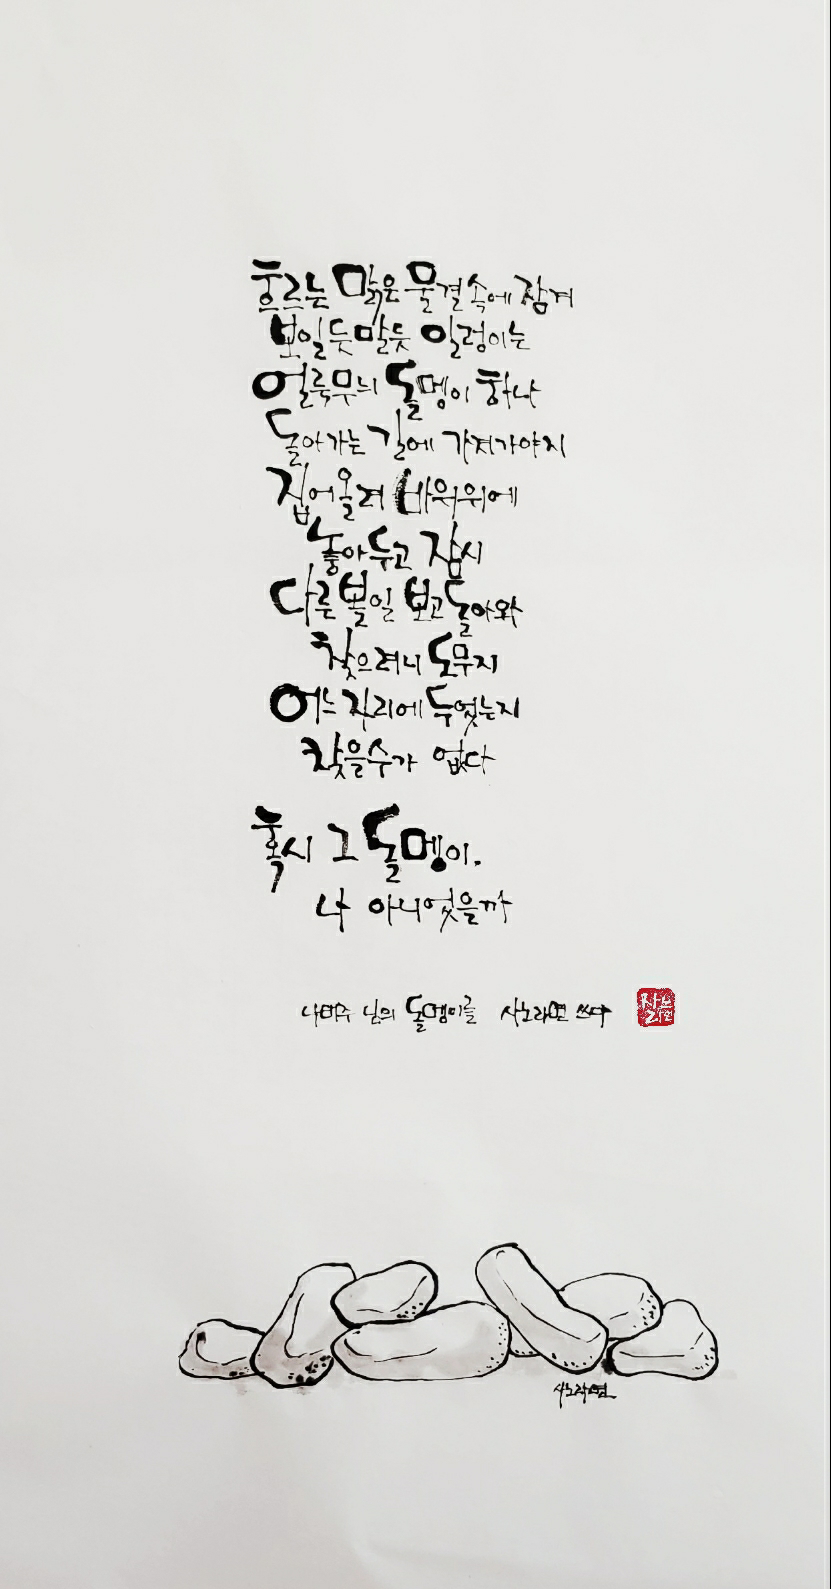 흐르는 맑은 물결 속에 잠겨
보일듯 말듯 일렁이는
얼룩무늬 돌멩이 하나
돌아가는 길에 가져가야지
집어올려 바위위에
놓아두고 잠시
다른 볼일 보고 돌아와
찾으려니 도무지
어느 자리에 두었는지
찾을수가 없다
혹시 그 돌멩이,
나 아니었을까
나태주 님의 돌멩이를 사노라면 쓰다
사노라면